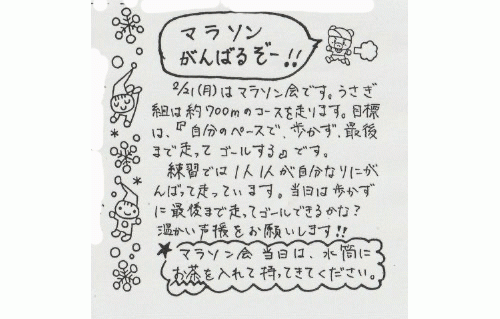 マラソン
がんばるぞー!!
2/21(月)はマラソン会です。うさぎ
組は約700mのコースを走ります。目標
は、『自分のペースで、歩かず、最後
まで走って ゴールする』です。
練習では1人1人が自分なりにが
んばって走っています。当日は歩かず
に最後まで走ってゴールできるかな?
温かい声援をお願いします!!
★マラソン会 当日は、水筒に
お茶を入れて持ってきてください。